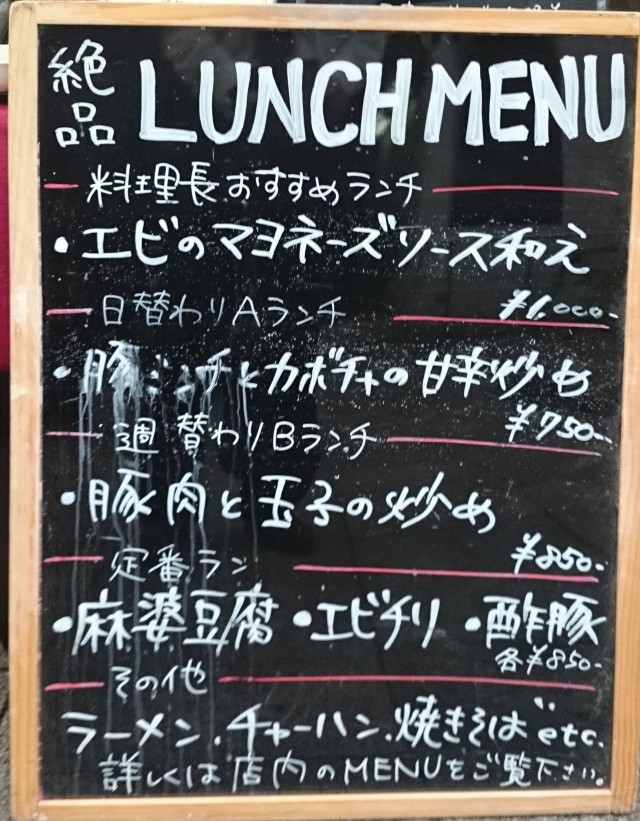 絶品 LUNCH MENU
料理長おすすめランチ
・エビのマヨネーズソース和え
¥1,000-
日替わりAランチ
・豚ミンチとカボチャの甘辛炒め
¥750-
週替わりBランチ
・豚肉と玉子の炒め
¥850-
定番ラン
・麻婆豆腐 ・エビチリ ・酢豚
各¥850-
その他
ラーメン.チャーハン.焼きそば etc.
詳しくは店内のMENUをご覧下さい。